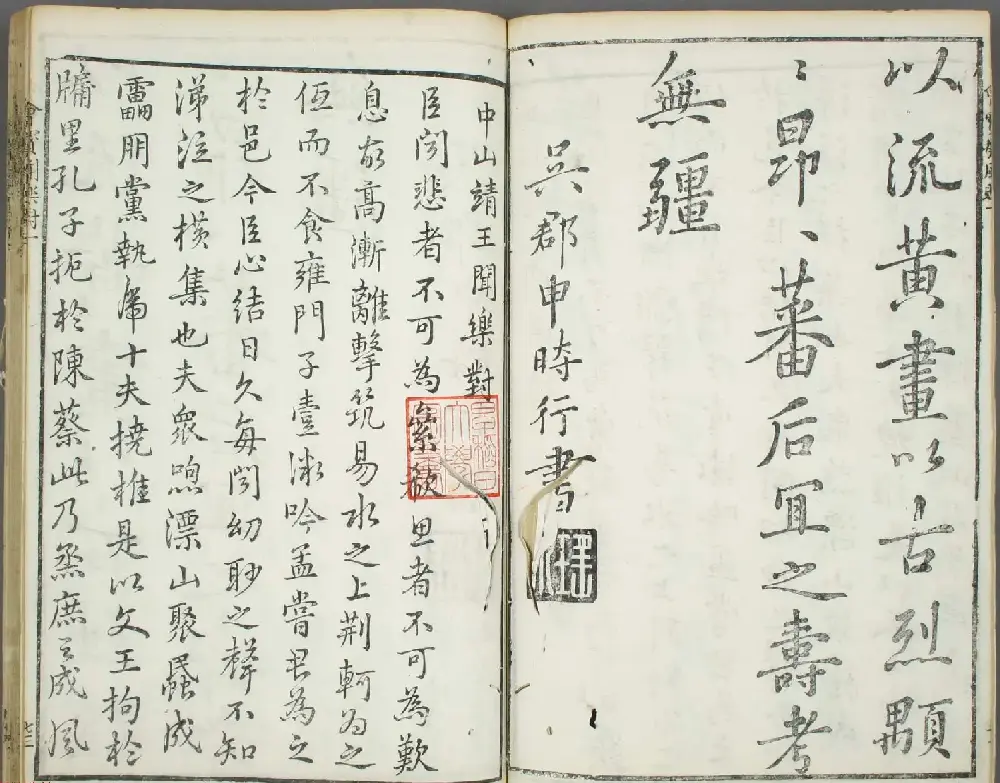 以流黄畫以古烈顒
、昂、蕃后宜之壽考
無疆
吳郡申時行書
中山靖王聞樂對
臣闻悲者不可為絫欷思者不可為歎
息故高漸離擊筑易水之上荆軻為之
低而不食雍門子壹微吟孟嘗君為之
於邑今臣心結日久每闻幼眇之聲不知
涕泣之橫集也夫眾喣漂山聚蟁成
靁朋黨執虎十夫撓椎是以文王拘於
牖里孔子扼於陳蔡此乃烝庶之成風